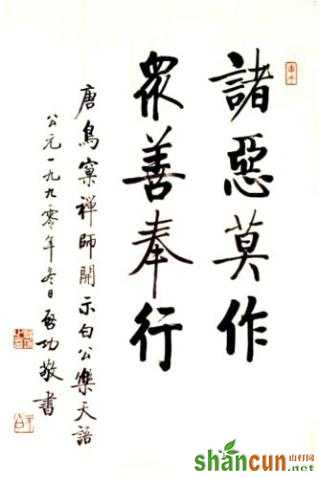 諸惡莫作
眾善奉行
唐鳥窠禪師開示白公樂天語
公元一九九零年冬日啓功敬書
shancun 山村网
.net